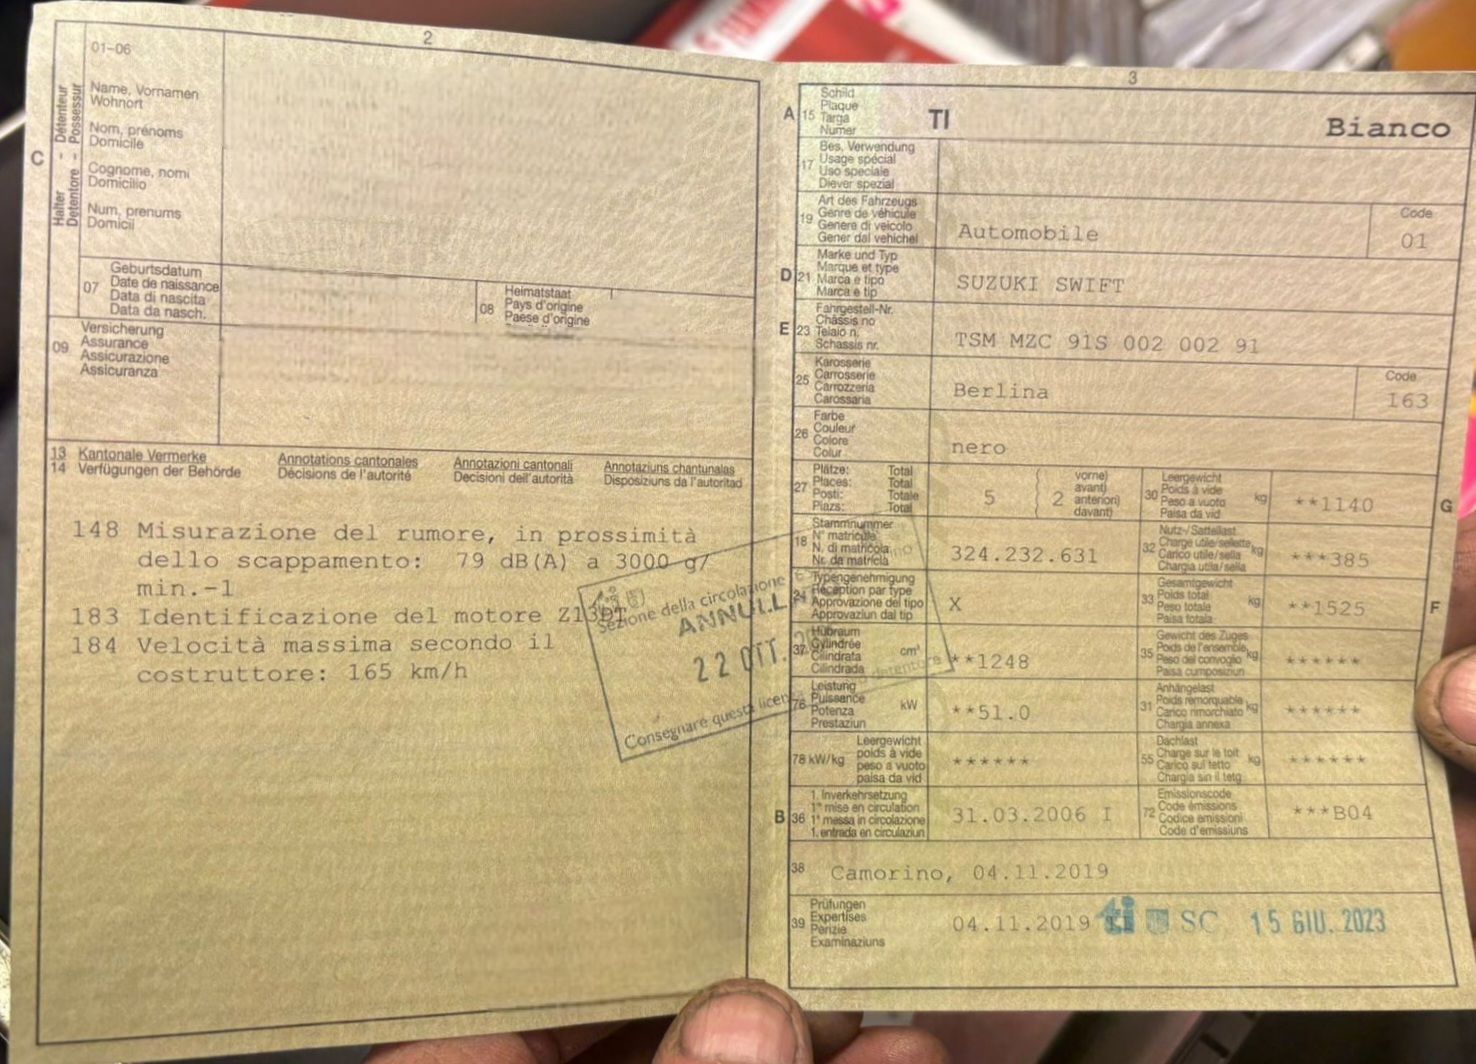 2
01-06
C
Halter - Détenteur
Detentore - Possessur
Name, Vornamen
Wohnort
Nom, prénoms
Domicile
Cognome, nomi
Domicilio
Num, prenums
Domicil
07
Geburtsdatum
Date de naissance
Data di nascita
Data da nasch.
08
Heimatstaat
Pays d'origine
Paese d'origine
09
Versicherung
Assurance
Assicurazione
Assicuranza
13 Kantonale Vermerke Annotations cantonales Annotazioni cantonali Annotaziuns chantunalas
14 Verfügungen der Behörde Décisions de l'autorité Decisioni dell'autorità Disposiziuns da l'autoritad
148 Misurazione del rumore, in prossimità
dello scappamento: 79 dB(A) a 3000 g/
min.-1
183 Identificazione del motore Z13DT
184 Velocità massima secondo il
costruttore: 165 km/h
Sezione della circolazione
ANNULL
22 OTT.
detentore
Consegnare questa licen
3
A 15
Schild
Plaque
Targa
Numer
TI Bianco
17
Bes. Verwendung
Usage spécial
Uso speciale
Diever spezial
19
Art des Fahrzeugs
Genre de véhicule
Genere di veicolo
Gener dal vehichel
Automobile
Code
01
D 21
Marke und Typ
Marque et type
Marca e tipo
Marca e tip
SUZUKI SWIFT
E 23
Fahrgestell-Nr.
Châssis no
Telaio n.
Schassis nr.
TSM MZC 91S 002 002 91
25
Karosserie
Carrosserie
Carrozzeria
Carossaria
Berlina
Code
163
26
Farbe
Couleur
Colore
Colur
nero
27
Plätze: Total
Places: Total
Posti: Totale
Plazs: Total
5 2
vorne)
avant)
anteriori)
davant)
30
Leergewicht
Poids à vide
Peso a vuoto
Paisa da vid
kg
**1140
G
18
Stammnummer
N° matricule
N. di matricola
Nr. da matricla
324.232.631
32
Nutz-/Sattellast
Charge utile/sellette
Carico utile/sella
Chargia utila/sella
kg
***385
24
Typengenehmigung
Réception par type
Approvazione del tipo
Approvaziun dal tip
X
33
Gesamtgewicht
Poids total
Peso totale
Paisa totala
kg
**1525
F
37
Hubraum
Cylindrée
Cilindrata
Cilindrada
cm³
**1248
35
Gewicht des Zuges
Poids de l'ensemble
Peso del convoglio
Paisa cumposiziun
kg
******
76
Leistung
Puissance
Potenza
Prestaziun
kW
**51.0
31
Anhängelast
Poids remorquable
Carico rimorchiato
Chargia annexa
kg
******
78 kW/kg
Leergewicht
poids à vide
peso a vuoto
paisa da vid
******
55
Dachlast
Charge sur le toit
Carico sul tetto
Chargia sin il tetg
kg
******
B 36
1. Inverkehrsetzung
1re mise en circulation
1a messa in circolazione
1. entrada en circulaziun
31.03.2006 I
72
Emissionscode
Code émissions
Codice emissioni
Code d'emissiuns
***B04
38
Camorino, 04.11.2019
39
Prüfungen
Expertises
Perizie
Examinaziuns
04.11.2019 ti SC 15 GIU. 2023